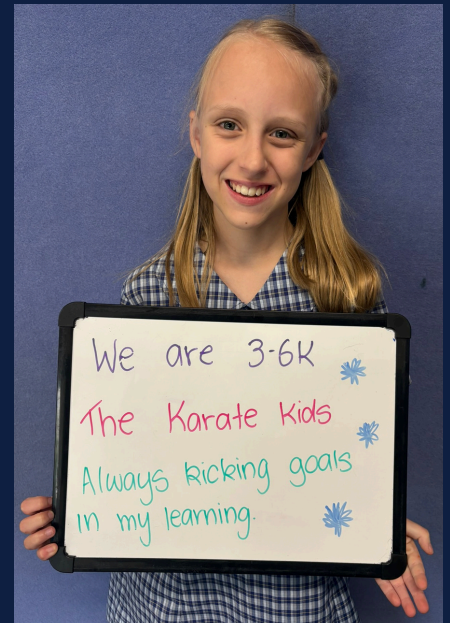 We are 3-6K
The Karate Kids
Always kicking goals
in my learning.